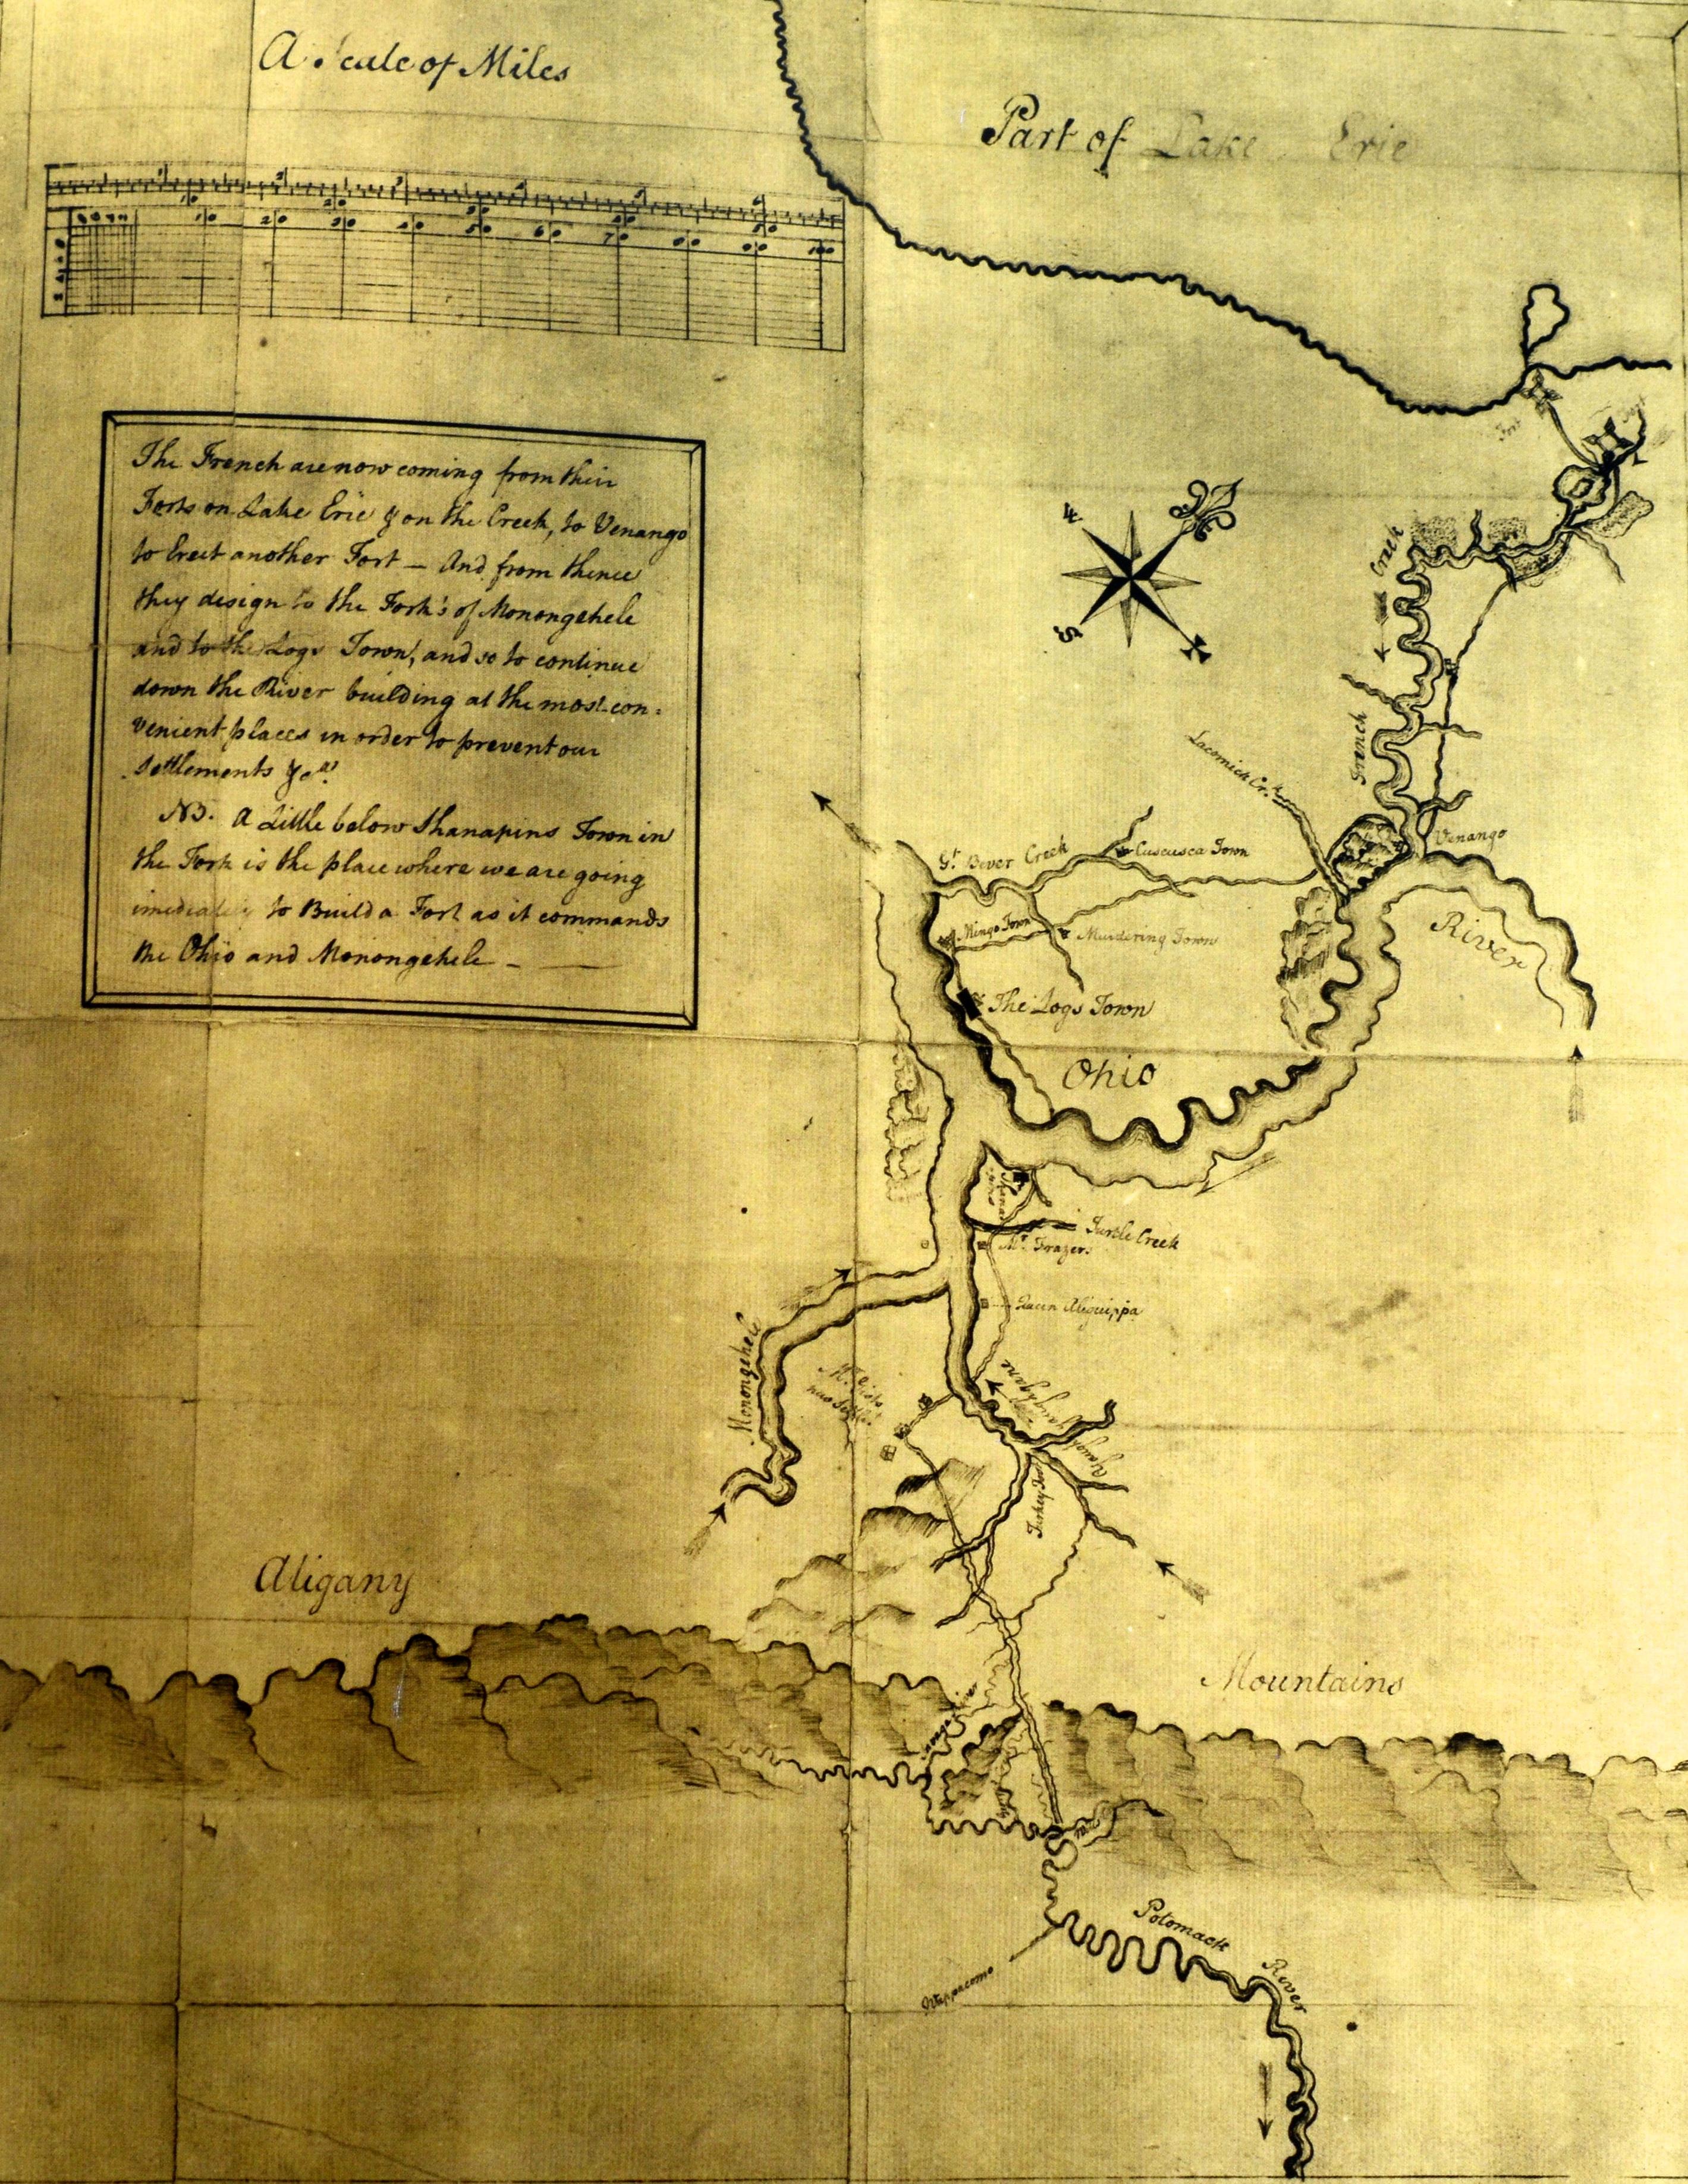 A Scale of Miles
Part of Lake Erie
10 20 30 40 50 60 70 80 90 100
The French are now coming from their
Forts on Lake Erie & on the Creek, to Venango
to Erect another Fort — And from thence
they design to the Fork's of Monongehele
and to the Logs Town, and so to continue
down the River building at the most con=
venient places in order to prevent our
Settlements &ca.
NB. A Little below Shanapins Town in
the Fork is the place where we are going
imediately to Build a Fort as it commands
the Ohio and Monongehele —
Fort
S
French Creek
Lacomick Cr.
Venango
Gt. Bever Creek
Cuscusca Town
River
Mingo Town
Murdering Town
The Logs Town
Ohio
Turtle Creek
Mr. Frazer.
Queen Aliquippa
Monongehele
Yaughyaughgane
Turkey Foot
Aligany
Mountains
Potomack River
Wappacomo